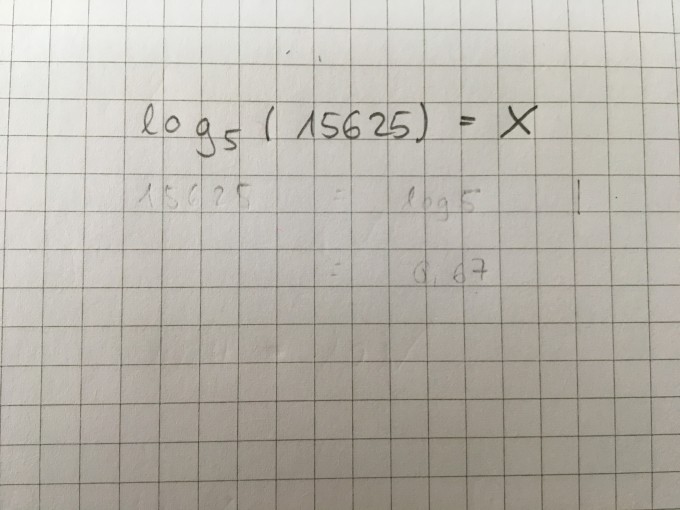 log₅(15625) = X
15625 = log 5 |
=